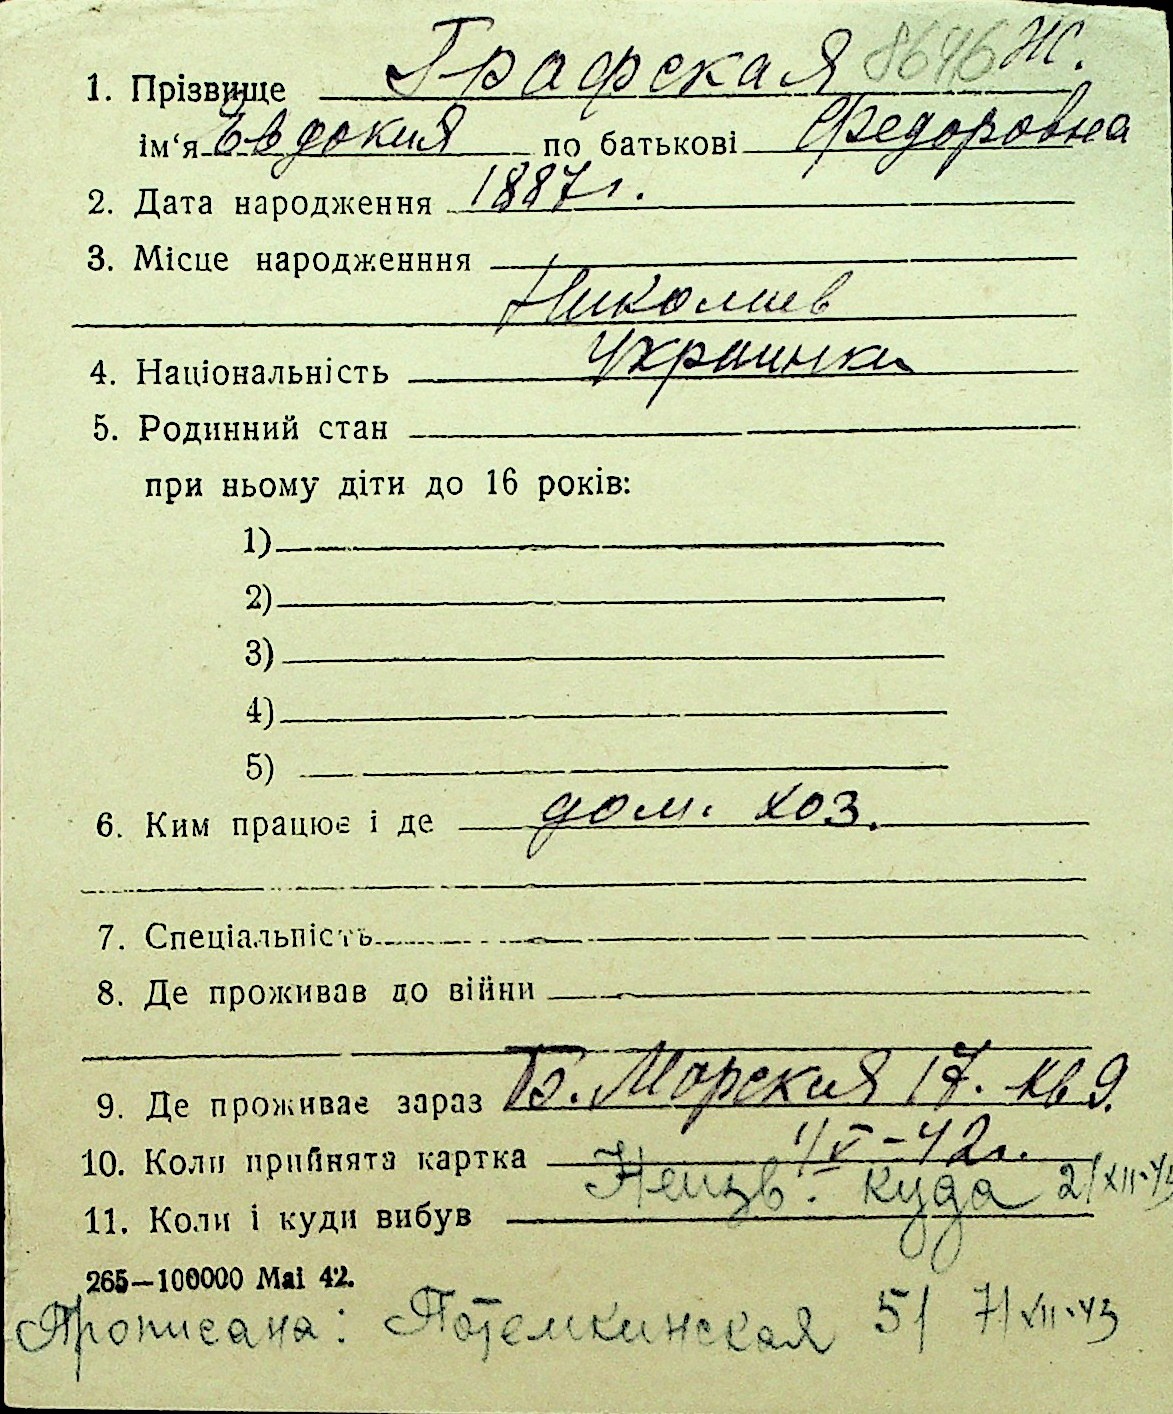 1. Прізвище Графская 8646 Ж.
ім‘я Евдокия по батькові Федоровна
2. Дата народження 1887 г.
3. Місце народженння
Николаев
4. Національність Украинка
5. Родинний стан
при ньому діти до 16 років:
1)
2)
3)
4)
5)
6. Ким працює і де дом. хоз.
7. Спеціальність
8. Де проживав до війни
9. Де проживає зараз Б. Морская 17. кв 9.
10. Коли прийнята картка 1/V-42г.
11. Коли і куди вибув Неизв. куда 2/XII-43
265—100000 Mai 42.
Прописана: Потемкинская 51 7/XII-43